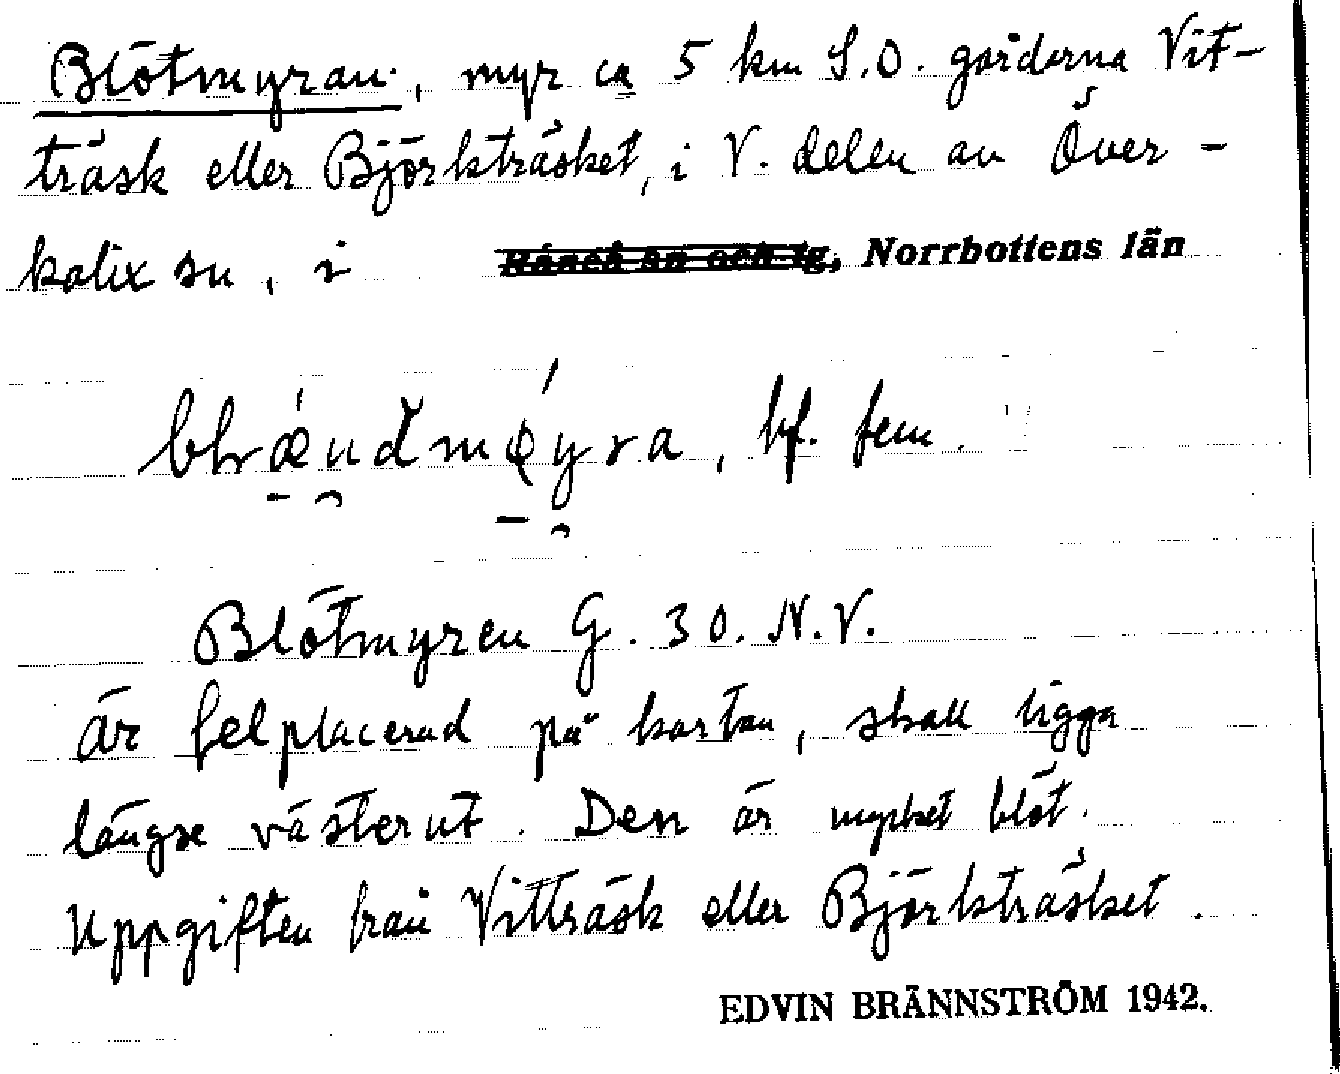 Blötmyran, myr ca 5 km S.O. gårderna Vit-
träsk eller Björkträsket, i V. delen av Över-
kalix sn, i ~~Råneå sn och tg,~~ Norrbottens län
hf. fem.
Blötmyren G. 30. N.V.
är felplacerad på kartan, skall ligga
längre västerut. Den är mycket blöt.
Uppgiften från Vitträsk eller Björkträsket.
EDVIN BRÄNNSTRÖM 1942.